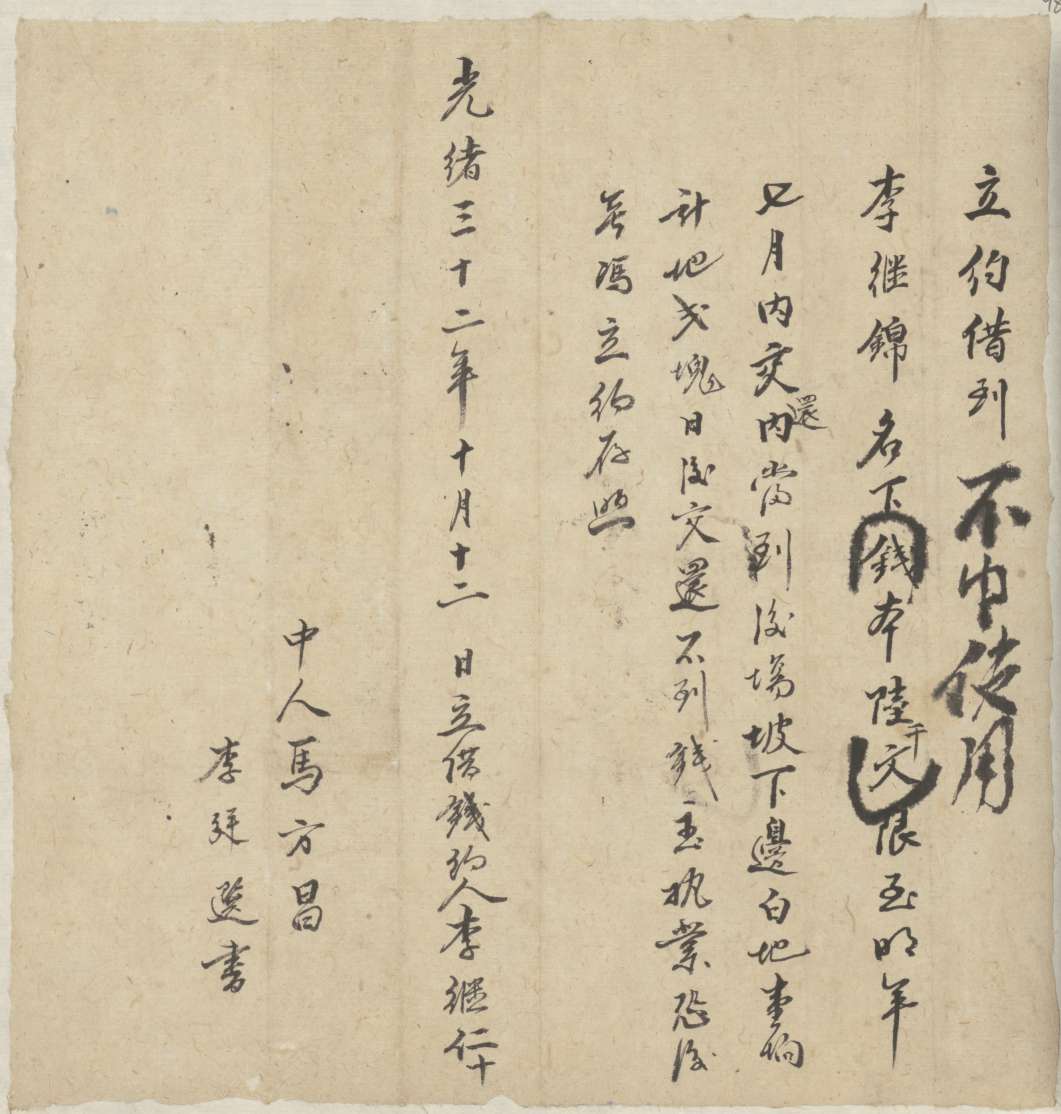 立约借到不中使用
李继錦名下錢本陸千文限至明年
七月内交还内當到後塲坡下邊白地壹垧
計地弍塊日後交還不到錢主执業恐後
無馮立約存照
光绪三十二年十月十二日立借錢约人李继仁十
中人馬方昌
李廷选書